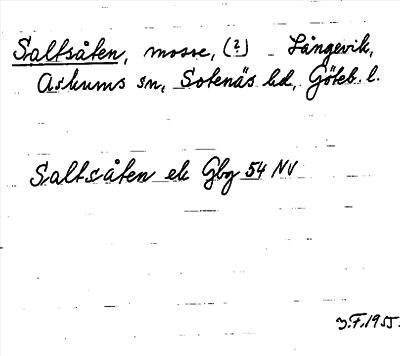 Saltsåten, mosse, (?) - Långevik,
Askums sn, Sotenäs hd, Göteb. l.
Saltsåten ek Gbg 54 NV
J.F. 1955.